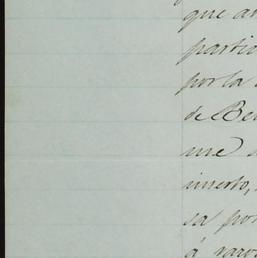 que a
partic
por la
de Be
me
inserto,
sa por
á